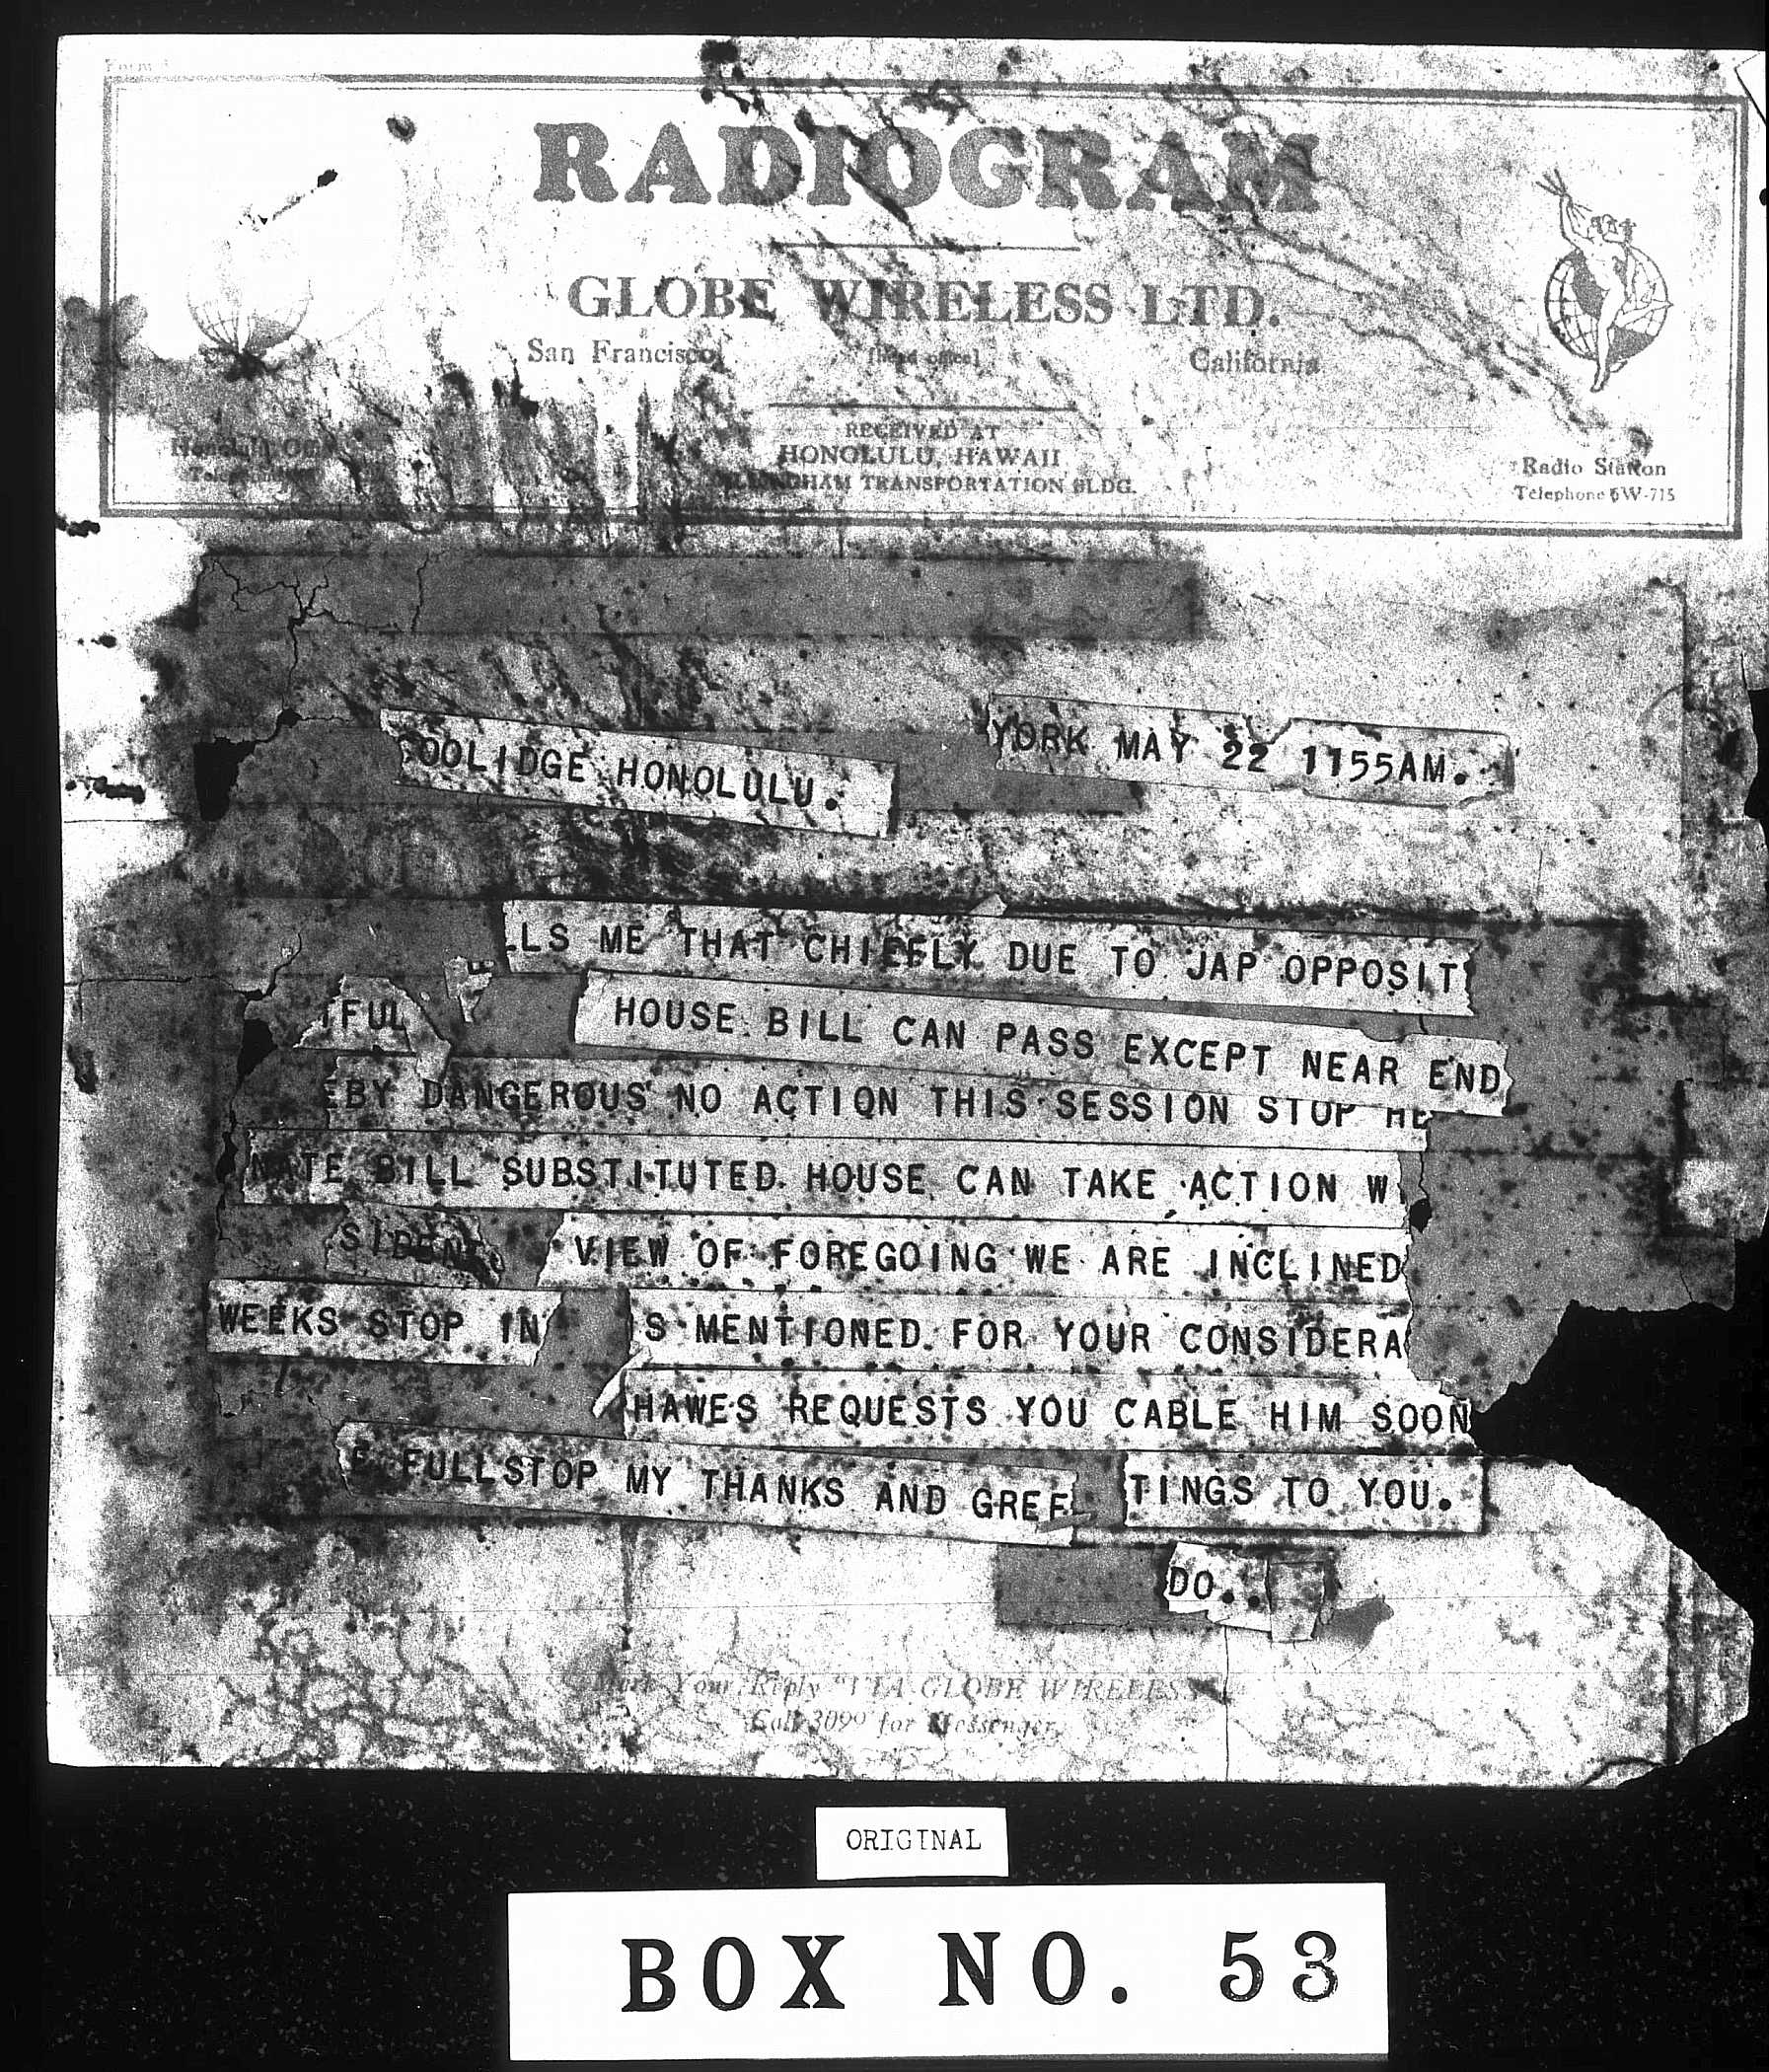 RADIOGRAM
GLOBE WIRELESS LTD.
San Francisco [head office] California
RECEIVED AT
HONOLULU, HAWAII
TRANSPORTATION BLDG.
Honolulu
Radio Station
Telephone 6W-715
YORK MAY 22 1155AM.
OOLIDGE HONOLULU.
LLS ME THAT CHIEFLY DUE TO JAP OPPOSIT
TFUL HOUSE BILL CAN PASS EXCEPT NEAR END
EBY DANGEROUS NO ACTION THIS SESSION STOP HE
NATE BILL SUBSTITUTED HOUSE CAN TAKE ACTION W
SIDENT VIEW OF FOREGOING WE ARE INCLINED
WEEKS STOP IN IS MENTIONED FOR YOUR CONSIDERA
HAWES REQUESTS YOU CABLE HIM SOON
E FULLSTOP MY THANKS AND GREE TINGS TO YOU.
DO..
Mark Your Reply "VIA GLOBE WIRELESS"
Call 3099 for Messenger
ORIGINAL
BOX NO. 53